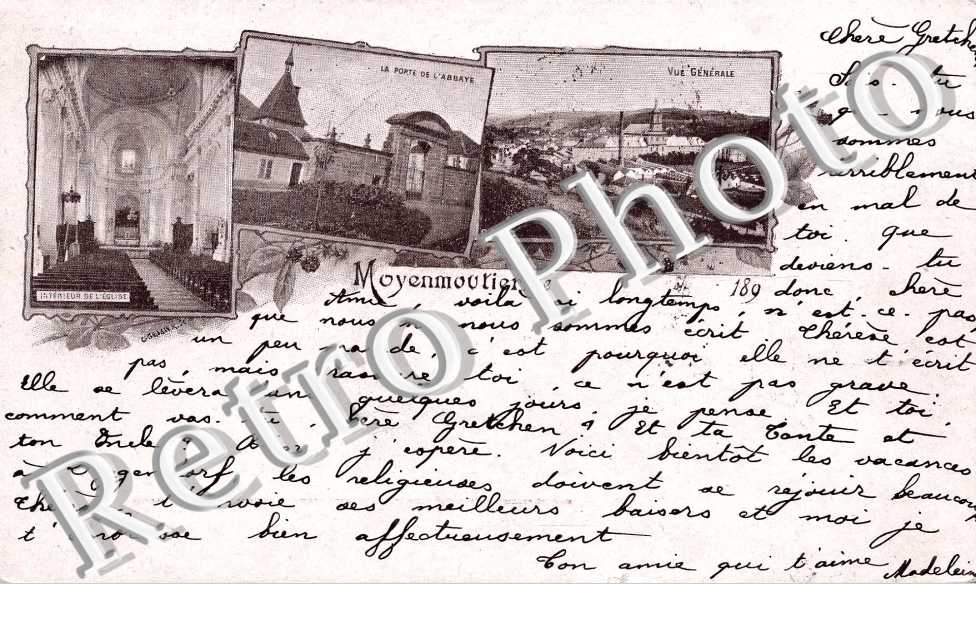 LA PORTE DE L'ABBAYE
VUE GÉNÉRALE
INTÉRIEUR DE L'ÉGLISE
Moyenmoutier
189
Retro Photo
Chère Gretchen
Sais-tu
que nous
sommes
terriblement
en mal de
toi. que
deviens-tu
donc, chère
Amie, voilà si longtemps, n'est-ce-pas
que nous nous sommes écrit Thérèse est
un peu malade, c'est pourquoi elle ne t'écrit
pas, mais rassure toi, ce n'est pas grave
Elle se lèvera quelques jours, je pense. Et toi,
comment vas-tu, chère Gretchen ? Et ta Tante et
ton Oncle ? j'espère. Voici bientôt les vacances
à les religieuses doivent se réjouir beaucoup
t'envoie ses meilleurs baisers et moi je
bien affectueusement
Ton amie qui t'aime Madeleine